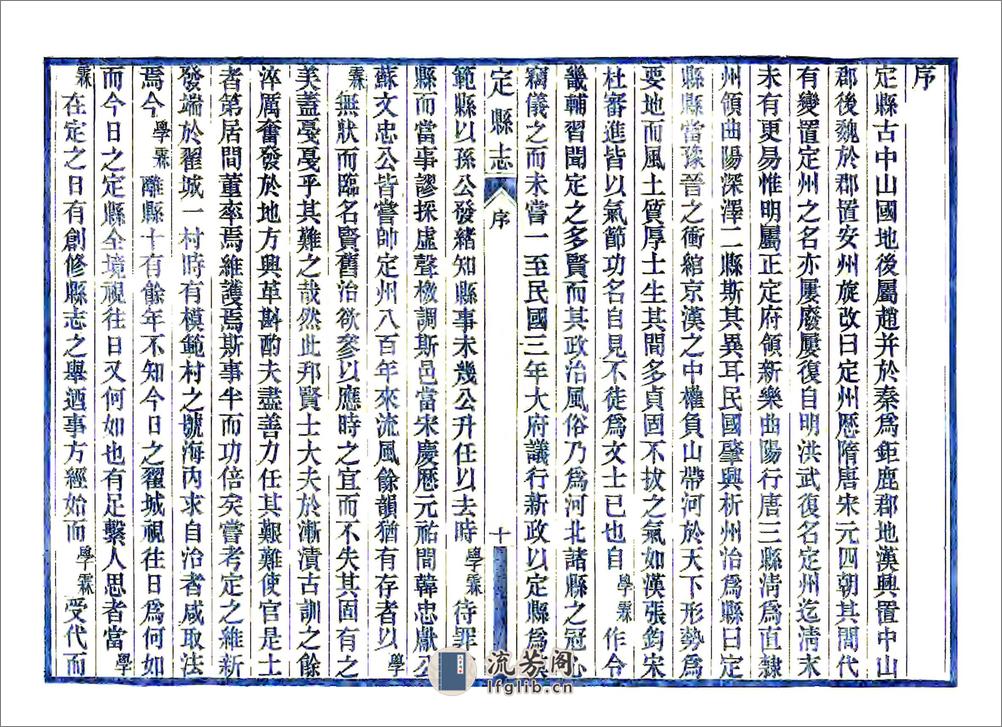 序
定縣古中山國地後屬趙并於秦爲鉅鹿郡地漢興置中山
郡後魏於郡置安州旋改曰定州歷隋唐宋元四朝其間代
有變置定州之名亦屢廢屢復自明洪武復名定州迄淸末
未有更易惟明屬正定府領新樂曲陽行唐三縣淸爲直隸
州領曲陽深澤二縣斯其異耳民國肇興析州治爲縣曰定
縣縣當豫晉之衝綰京漢之中權負山帶河於天下形勢爲
要地而風土質厚士生其間多貞固不拔之氣如漢張鈞宋
杜審進皆以氣節功名自見不徒爲文士已也自學霖作令
畿輔習聞定之多賢而其政治風俗乃爲河北諸縣之冠心
竊儀之而未嘗一至民國三年大府議行新政以定縣爲模
定縣志
序
十
範縣以孫公發緒知縣事未幾公升任以去時學霖待罪
縣而當事謬採虛聲檄調斯邑當宋慶歷元祐間韓忠獻公
蘇文忠公皆嘗帥定州八百年來流風餘韻猶有存者以學
霖無狀而臨名賢舊治欲參以應時之宜而不失其固有之
美蓋戞戞乎其難之哉然此邦賢士大夫於漸漬古訓之餘
淬厲奮發於地方興革斟酌夫盡善力任其艱難使官是土
者第居間董率焉維護焉斯事半而功倍矣嘗考定之維新
發端於翟城一村時有模範村之號海內求自治者咸取法
焉今學霖離縣十有餘年不知今日之翟城視往日爲何如
而今日之定縣全境視往日又何如也有足繫人思者當學
霖在定之日有創修縣志之舉迺事方經始而學霖受代而
流芳阁
lfglib.cn